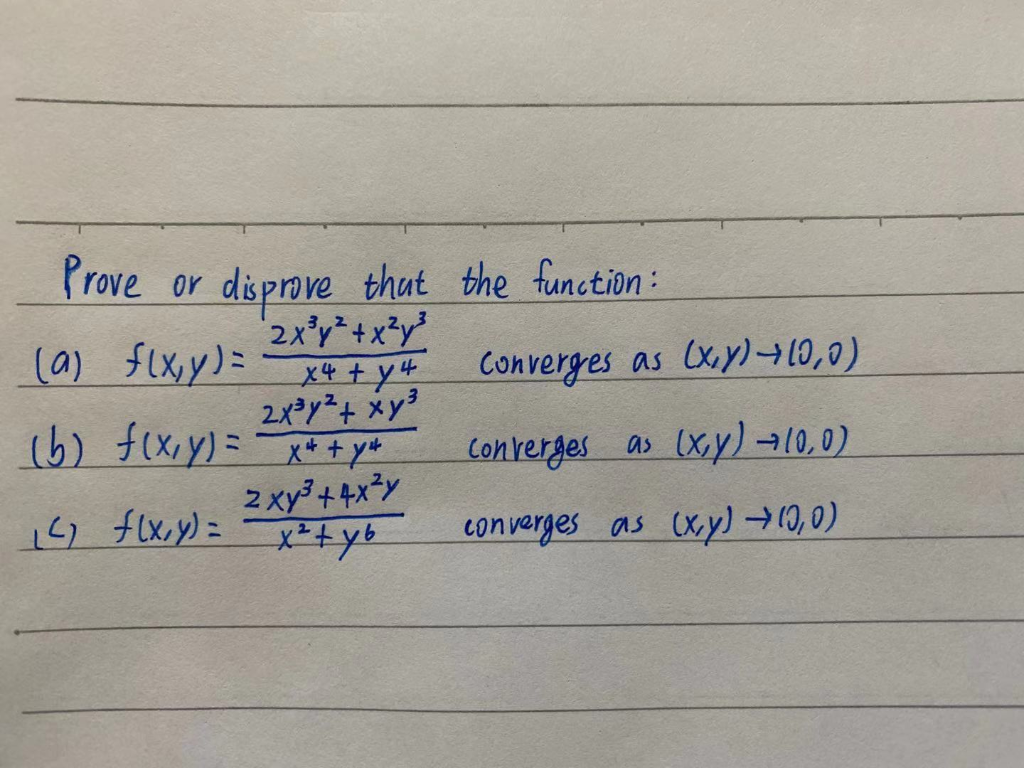 Prove or disprove that the function:
(a) f(x,y) = (2x³y² + x²y³)/(x⁴ + y⁴) converges as (x,y)→(0,0)
(b) f(x,y) = (2x³y² + xy³)/(x⁴ + y⁴) converges as (x,y)→(0,0)
(c) f(x,y) = (2xy³ + 4x²y)/(x² + y⁶) converges as (x,y)→(0,0)